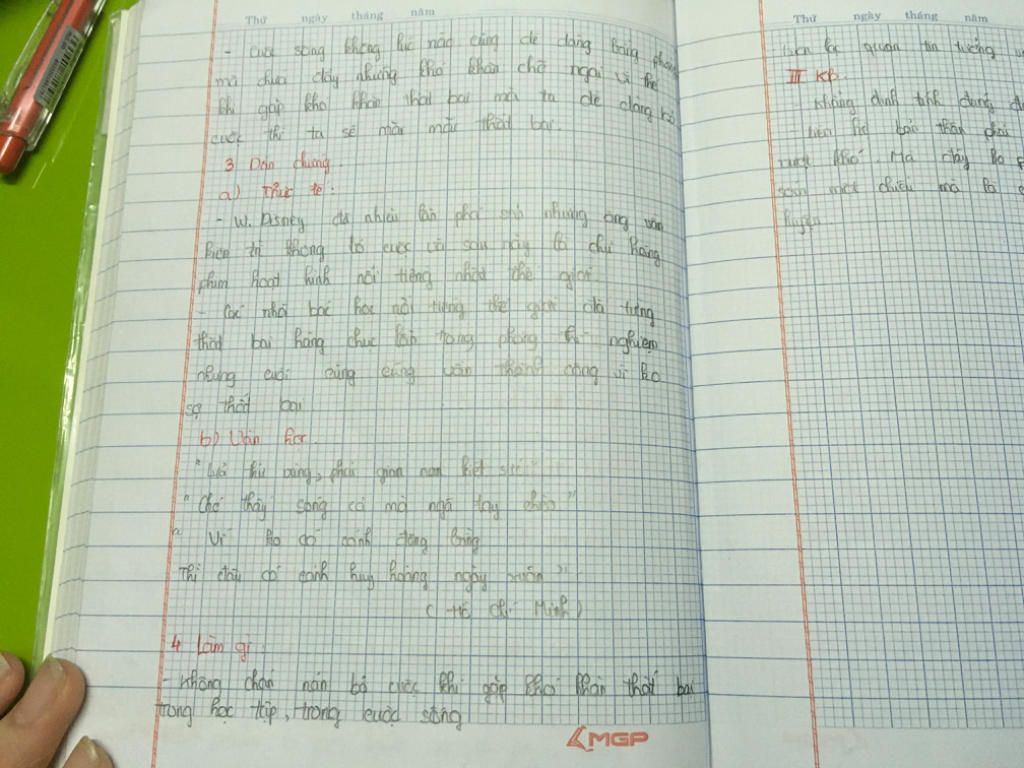 Thứ ngày tháng năm
- Cuộc sống không lúc nào cũng dễ dàng bằng phẳng
mà chứa đầy những khó khăn chở ngại vì thế
khi gặp khó khăn thất bại mà ta dễ dàng bỏ
cuộc thì ta sẽ mãi mãi thất bại.
3 Dẫn chứng.
a) Thực tế:
- W. Disney đã nhiều lần phá sản nhưng ông vẫn
kiên trì không bỏ cuộc và sau này là chủ hãng
phim hoạt hình nổi tiếng nhất thế giới.
- Các nhà bác học nổi tiếng thế giới đã từng
thất bại hàng chục lần trong phòng thí nghiệm
nhưng cuối cùng cũng vẫn thành công vì ko
sợ thất bại
b) Văn học.
"Lửa thử vàng, phải gian nan kiệt sức"
"Chớ thấy sóng cả mà ngã tay chèo"
" Ví ko có cảnh đông
Thì đâu có cảnh huy hoàng ngày xuân"
(Hồ Chí Minh)
4 Làm gì
- Không chán nản bỏ cuộc khi gặp khó khăn thất bại
trong học tập, trong cuộc sống
MGP
Thứ ngày tháng năm
lạc quan tin tưởng
III KB.
- Khẳng định tính đúng
- Liên hệ bản thân phải
vượt khó. Mà đây ko
một chiều mà là
luyện